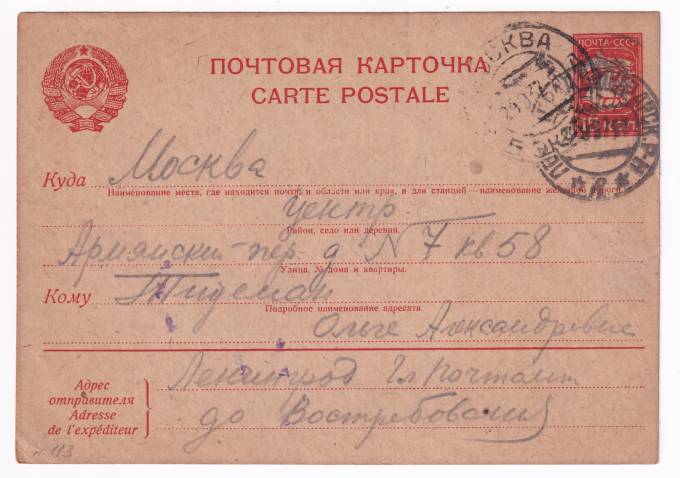 ПОЧТОВАЯ КАРТОЧКА
CARTE POSTALE
ПОЧТА-СССР
15 КОП.
МОСКВА
Куда Москва
Наименование места, где находится почта, и области или края, а для станций — наименование железной дороги.
Центр
Район, село или деревня.
Армянский пер. д N 7 кв 58
Улица, № дома и квартиры.
Кому Тидеман
Подробное наименование адресата.
Ольге Александровне
Адрес
отправителя
Adresse
de l'expéditeur
Ленинград Гл Почтамт
до Востребования
113